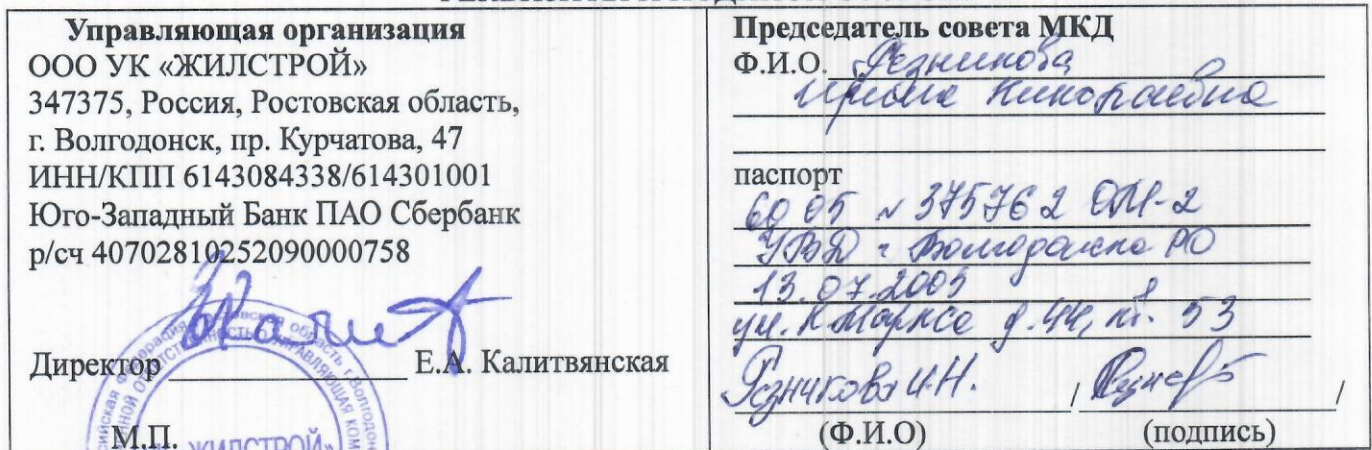 Управляющая организация
ООО УК «ЖИЛСТРОЙ»
347375, Россия, Ростовская область,
г. Волгодонск, пр. Курчатова, 47
ИНН/КПП 6143084338/614301001
Юго-Западный Банк ПАО Сбербанк
р/сч 40702810252090000758
Директор Е.А. Калитвянская
М.П.
ЖИЛСТРОЙ»
Председатель совета МКД
Ф.И.О. Резникова
Ирина Николаевна
паспорт
60 05 № 375762 ОМ-2
УВД г. Волгодонска РО
13.07.2005
ул. К.Маркса д.44, кв. 53
Резникова И.Н. , /
(Ф.И.О) (подпись)